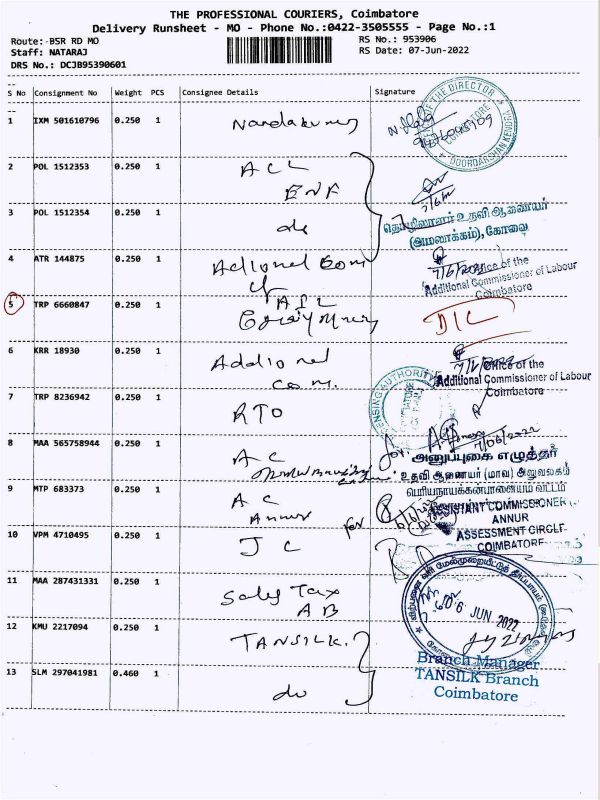 THE PROFESSIONAL COURIERS, Coimbatore
Delivery Runsheet - MO - Phone No.:0422-3505555 - Page No.:1
Route: BSR RD MO
RS No.: 953906
Staff: NATARAJ
RS Date: 07-Jun-2022
DRS No.: DCJB95390601
S No Consignment No Weight PCS Consignee Details Signature
1 IXM 501610796 0.250 1 Nandakumar
OF THE DIRECTOR
COIMBATORE
DOORDARSHAN KENDRA
2 POL 1512353 0.250 1 ACL
ENF
3 POL 1512354 0.250 1 do
தொழிலாளர் உதவி ஆணையர்
(அமலாக்கம்), கோவை
4 ATR 144875 0.250 1 Adional Com
7/6/2022
Office of the
Additional Commissioner of Labour
Coimbatore
5 TRP 6660847 0.250 1
D/C
6 KRR 18930 0.250 1 Addional
com.
Office of the
Additional Commissioner of Labour
Coimbatore
7 TRP 8236942 0.250 1 RTO
ENSING AUTHORITY
8 MAA 565758944 0.250 1 AC
for
7/06/2022
அனுப்புகை எழுத்தர்
உதவி ஆணையர் (மாவ) அலுவலகம்
பெரியநாயக்கன்பாளையம் வட்டம்
9 MTP 683373 0.250 1 AC
Annur
for
ASSISTANT COMMISSIONER
ANNUR
ASSESSMENT CIRCLE
COIMBATORE
10 VPM 4710495 0.250 1 JC
11 MAA 287431331 0.250 1 Sales Tax
AB
06 JUN 2022
12 KMU 2217094 0.250 1 TANSILK.
Branch Manager
TANSILK Branch
Coimbatore
13 SLM 297041981 0.460 1 do